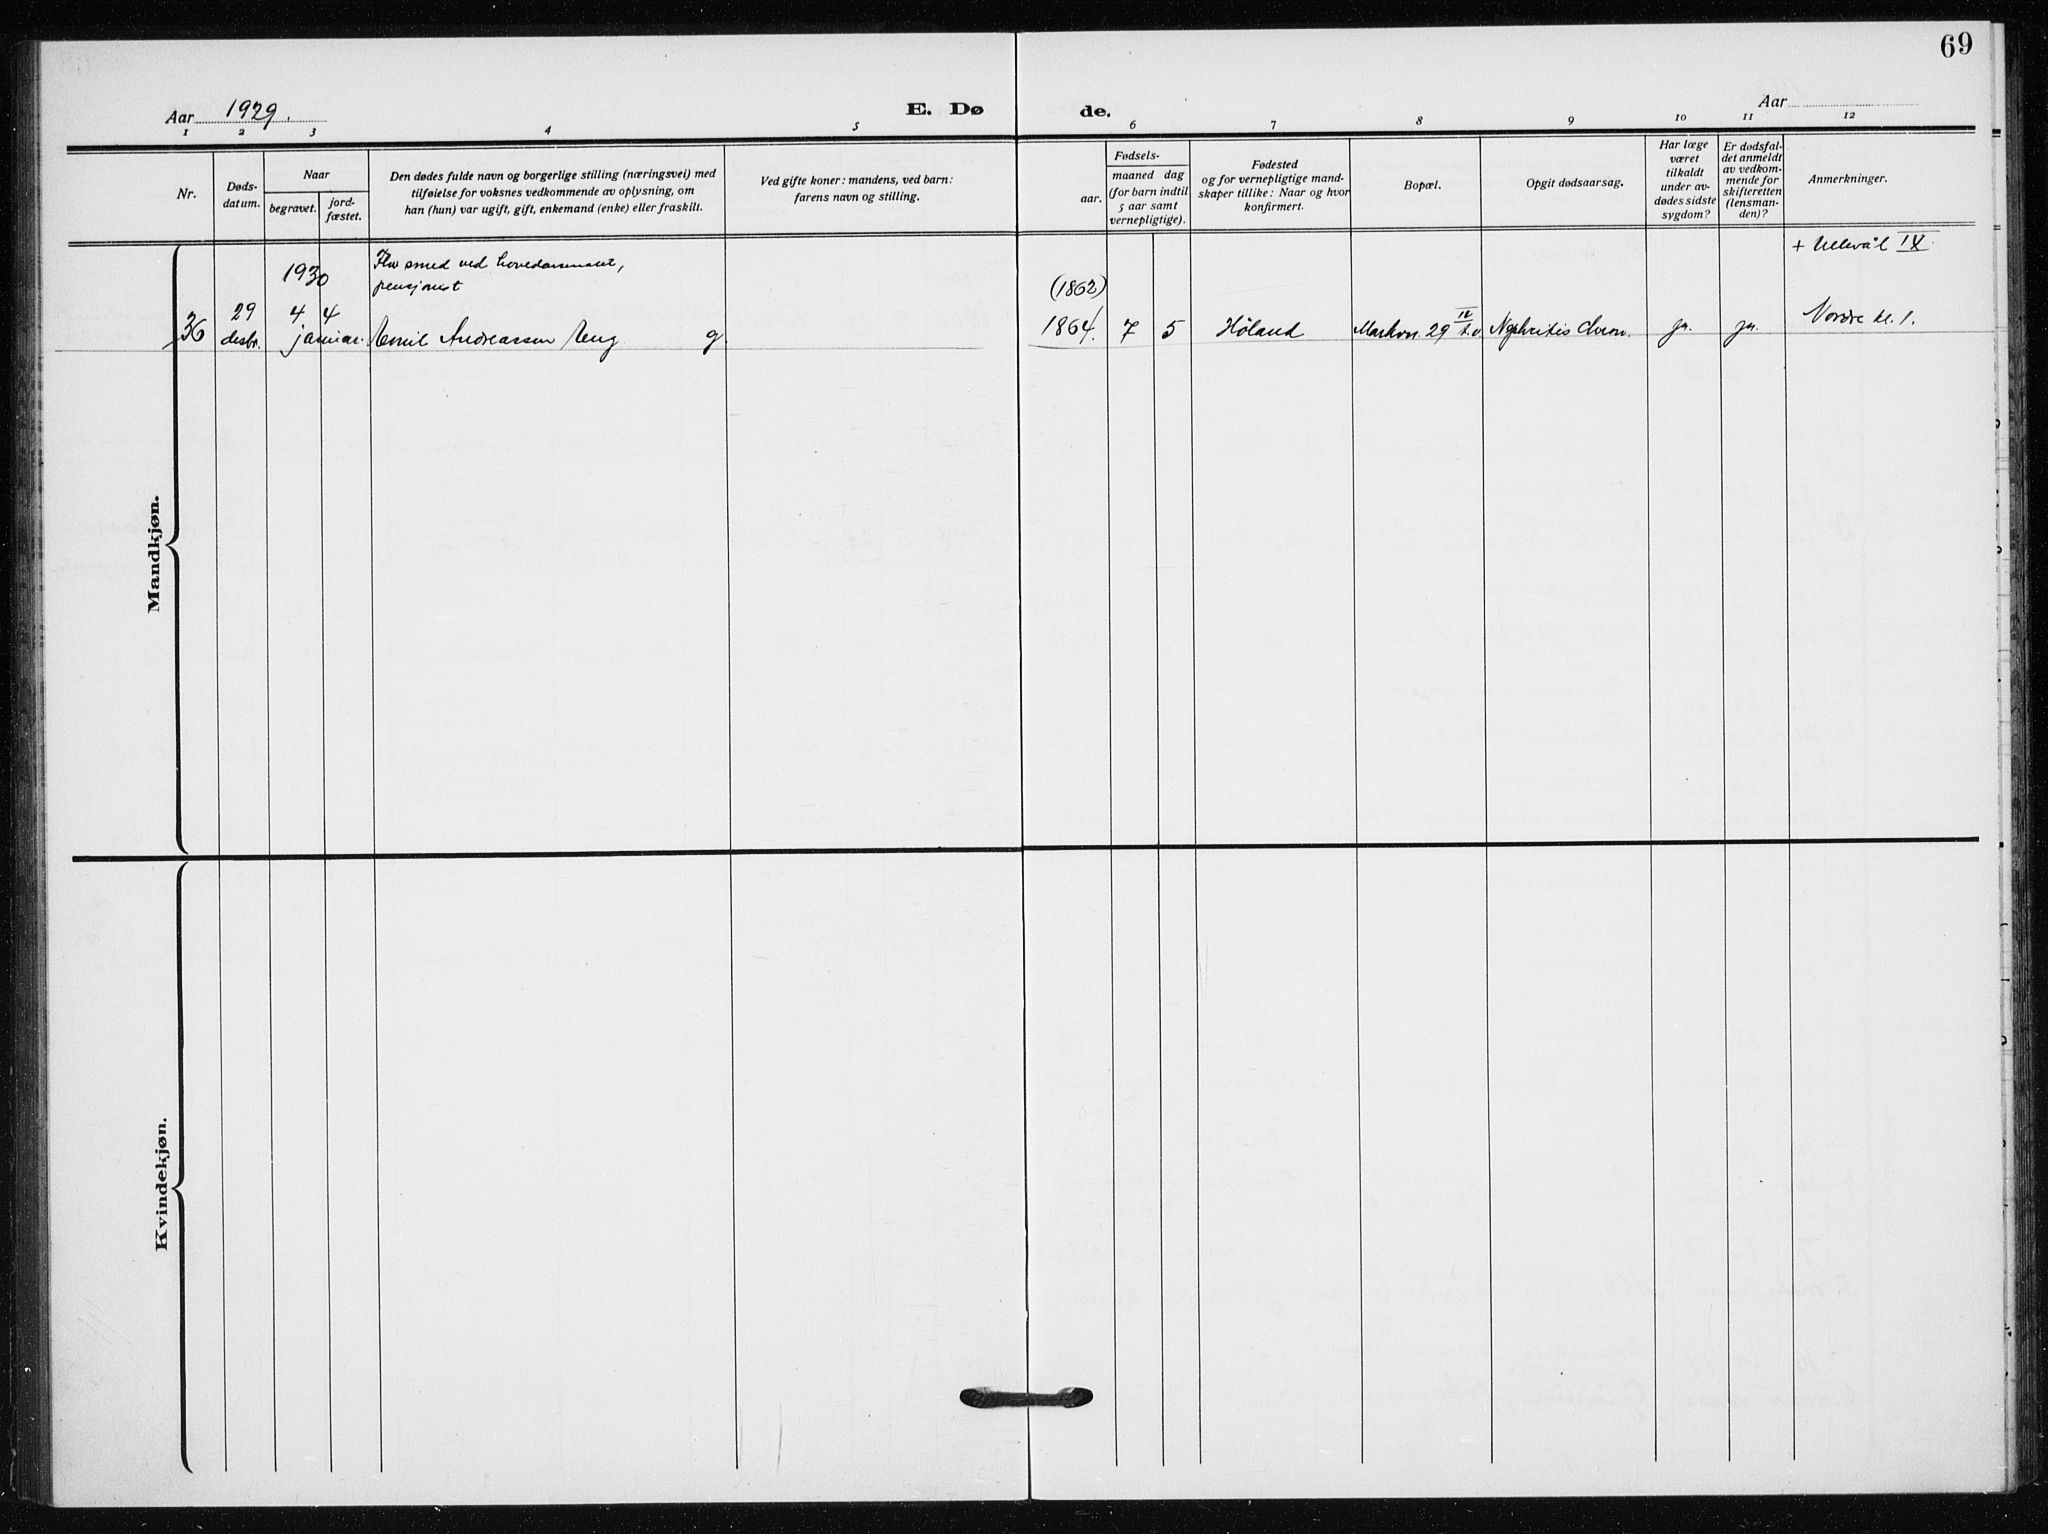 69
Aar 1929.
E. Dø
de.
Aar
1 2 3 4 5 6 7 8 9 10 11 12
Nr.
Døds-
datum.
Naar
begravet.
jord-
fæstet.
Den dødes fulde navn og borgerlige stilling (næringsvei) med
tilføielse for voksnes vedkommende av oplysning, om
han (hun) var ugift, gift, enkemand (enke) eller fraskilt.
Ved gifte koner: mandens, ved barn:
farens navn og stilling.
Fødsels-
aar.
maaned dag
(for barn indtil
5 aar samt
vernepligtige).
Fødested
og for vernepligtige mand-
skaper tillike: Naar og hvor
konfirmert.
Bopæl.
Opgit dødsaarsag.
Har læge
været
tilkaldt
under av-
dødes sidste
sygdom?
Er dødsfal-
det anmeldt
av vedkom-
mende for
skifteretten
(lensman-
den)?
Anmerkninger.
Mandkjøn.
36
29
desbr.
1930
4 4
januar.
smed ved
pensjonist
Emil Andreassen Eng g
(1862)
1864. 7 5
Høland
Markvn. 29 IV t.v.
Nephritis chron.
ja.
ja.
+ Ullevål IX.
Nordre kl. 1.
Kvindekjøn.